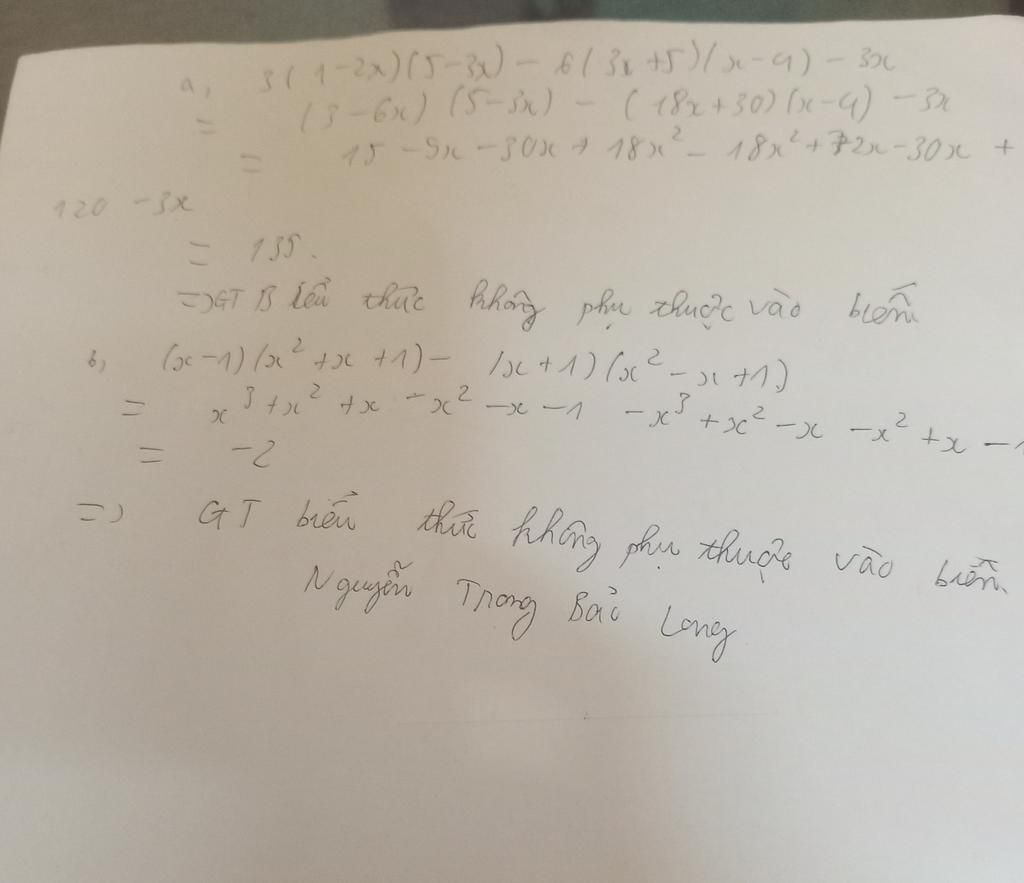 a, 3(1-2x)(5-3x) - 6(3x+5)(x-4) - 3x
= (3-6x)(5-3x) - (18x+30)(x-4) - 3x
= 15 - 9x - 30x + 18x² - 18x² + 72x - 30x +
120 - 3x
= 135.
=> GT Biểu thức không phụ thuộc vào biến
b, (x-1)(x²+x+1) - (x+1)(x²-x+1)
= x³ + x² + x - x² - x - 1 - x³ + x² - x - x² + x - 1
= -2
=> GT biểu thức không phụ thuộc vào biến.
Nguyễn Trong Bảo Long